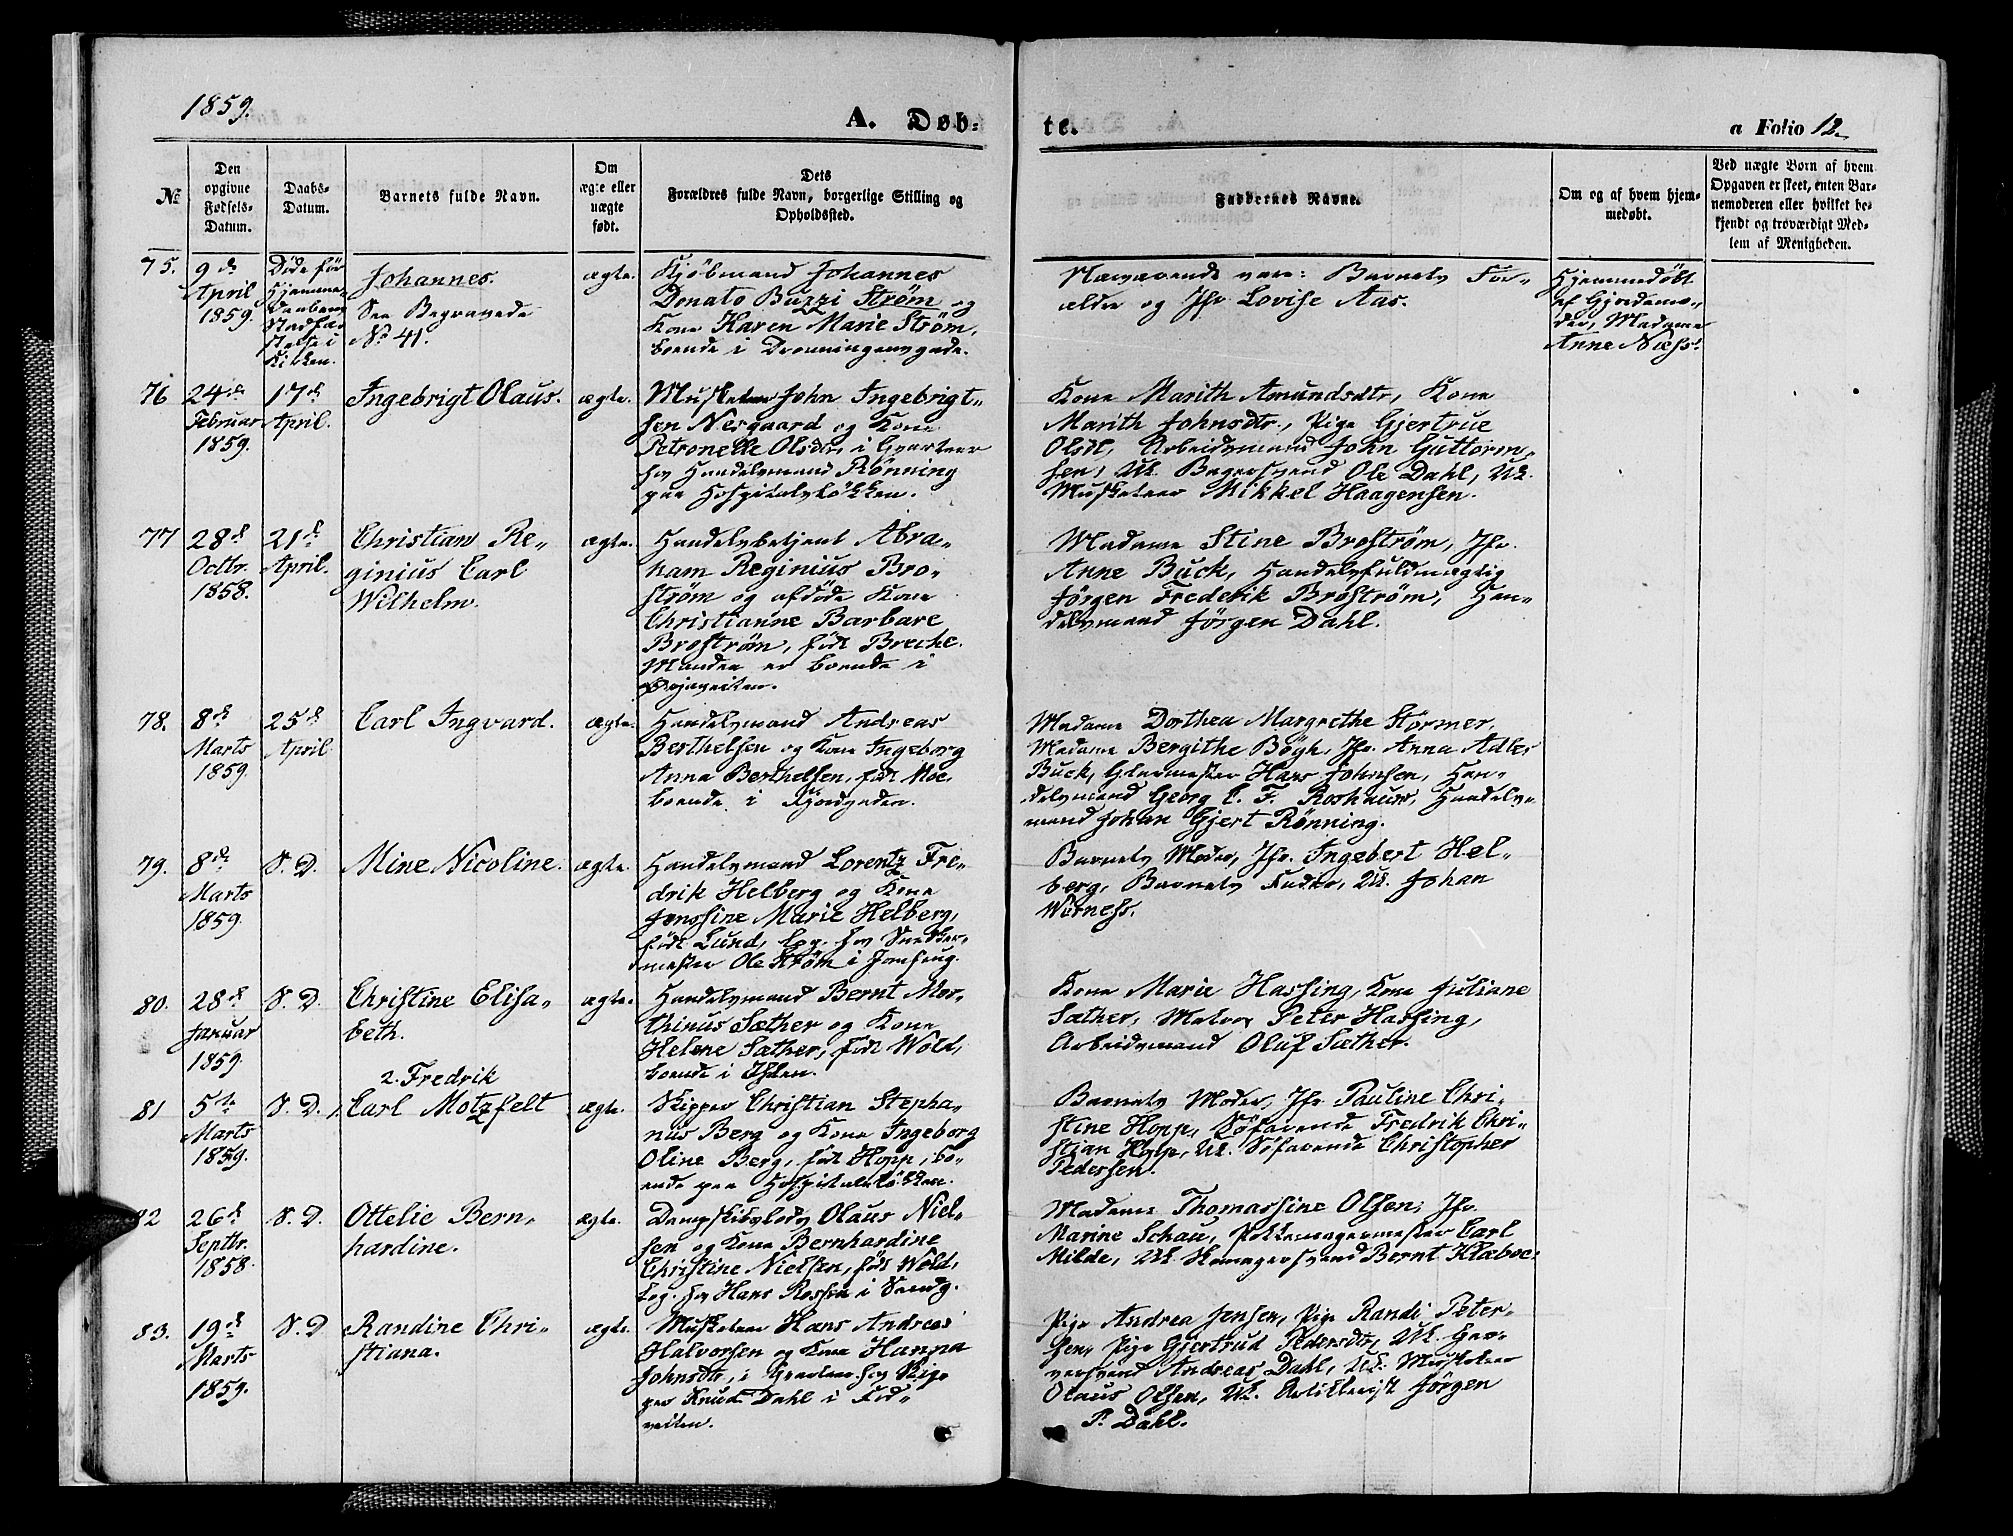 1859.
A. Døb-
te.
a Folio 12.
No
Den
opgivne
Fødsels-
Datum.
Daabs-
Datum.
Barnets fulde Navn.
Om
ægte eller
uægte
født.
Dets
Forældres fulde Navn, borgerlige Stilling og
Opholdssted.
Faddernes Navne.
Om og af hvem hjem-
medøbt.
Ved uægte Børn af hvem
Opgaven er skeet, enten Bar-
nemoderen eller hvilket be-
kjendt og troværdigt Med-
lem af Menigheden.
75.
9de
April
1859.
Døde før
Hjemme-
Daabens
Stadfæ-
stelse i
Kirken.
Johannes.
See Begravede
No 41.
ægte.
Kjøbmand Johannes
Donato Buzzi Strøm og
Kone Haren Marie Strøm,
boende i Dronningensgade.
Nærværende vare: Barnets For-
ældre og Jfr. Lovise Aas.
Hjemmedøbt
af Gjordemo-
der, Madame
Anne Næss.
76
24de
Februar
1859.
17de
April.
Ingebrigt Olaus.
ægte.
Musketeer John Ingebrigt-
sen Nesgaard og Kone
Petronelle Olsdtr, i Qvarteer
hos Handelsmand Rønning
paa Hospitalsløkken.
Kone Marith Amundsdtr, Kone
Marith Johnsdtr., Pige Gjertrue
Olsdt, Arbeidsmand John Guttorm-
sen, Uk. Bagersvend Ole Dahl, Uk.
Musketeer Mikkel Haagensen.
77
28de
Octbr.
1858.
21de
April.
Christian Re-
ginius Carl
Wilhelm.
ægte.
Handelsbetjent Abra-
ham Reginius Bro-
strøm og afdøde Kone
Christianne Barbare
Brostrøm, født Breche.
Manden er boende i
Madame Stine Brostrøm, Jfr.
Anne Buck, Handelsfuldmægtig
Jørgen Frederik Brostrøm, Han-
delsmand Jørgen Dahl.
78.
8de
Marts
1859.
25de
April
Carl Ingvard.
ægte.
Handelsmand Andreas
Berthelsen og Kone Ingeborg
Anna Berthelsen, født Moe
boende i Fjordgaden.
Madame Dorthea Margrethe Størmer,
Madame Bergithe Bøgh, Jfr. Anna Adler
Buck, Glarmester Hans Johnsen, Han-
delsmand Georg C. F. Roshauw, Handels-
mand Johan Gjert Rønning.
79.
8de
Marts
1859.
S. D.
Mine Nicoline.
ægte.
Handelsmand Lorentz Fre-
drik Helberg og Kone
Jonssine Marie Helberg,
født Lund, log. hos Snedker-
mester Ole Strøm i Jomfrug.
Barnets Moder, Jfr. Ingebert Hel-
berg, Barnets Fader, Uk. Johan
Werness.
80.
28de
Januar
1859.
S. D.
Christine Elisa-
beth.
ægte.
Handelsmand Bernt Mor-
thinus Sæther og Kone
Helene Sæther, født Wold,
boende i Ihlen.
Kone Marie Hassing, Kone Juliane
Sæther, Maler Peter Hassing,
Arbeidsmand Oluf Sæther.
81
5te
Marts
1859.
S. D.
2. Fredrik
1. Carl Motzfelt
ægte.
Skipper Christian Stepha-
nus Berg og Kone Ingeborg
Oline Berg, født Hopp, bo-
ende paa Hospitalsløkken.
Barnets Moder, Jfr. Pauline Chri-
stine Hopp, Søfarende Fredrik Chri-
stian Hopp, Uk. Søfarende Christopher
Pedersen.
82
26de
Septbr.
1858.
S. D.
Ottelie Bern-
hardine.
ægte.
Dampskibslods Olaus Niel-
sen og Kone Bernhardine
Christine Nielsen, født Wold,
log. hos Hans Rossen i Sandg.
Madame Thomassine Olsen, Jfr.
Marine Schau, Pottemagermester Carl
Milde, Uk. Skomagersvend Bernt Klæboe.
83.
19de
Marts
1859.
S. D
Randine Chri-
stiana.
ægte.
Musketeer Hans Andreas
Halvorsen og Kone Hanna
Johnsdtr, i Qvarteer hos Skip-
per Knud Dahl i Fid-
veiten.
Pige Andrea Jensen, Pige Randi Peter-
sen, Pige Gjertrud Pedersdtr, Uk. Gar-
versvend Andreas Dahl, Uk. Musketeer
Olaus Olsen, Uk. Artillerist Jørgen
P. Dahl.